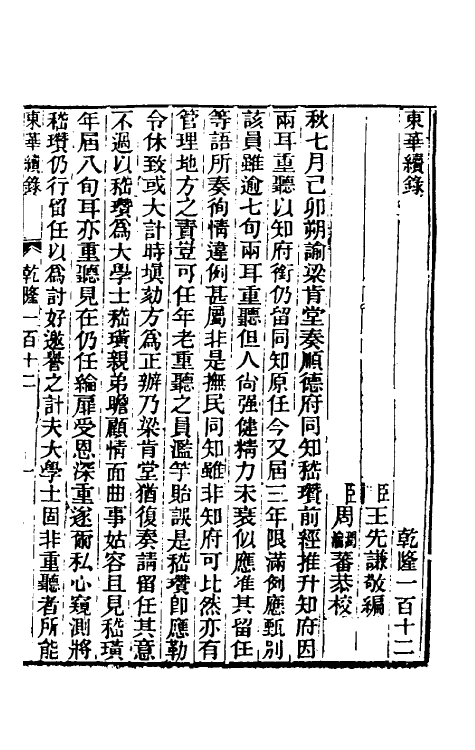 東華續錄
乾隆一百十二
臣王先謙敬編
臣周潤蕃恭校
秋七月己卯朔諭梁肯堂奏順德府同知嵇瓚前經推升知府因
兩耳重聽以知府銜仍留同知原任今又屆三年限滿例應甄別
該員雖逾七旬兩耳重聽但人尙强健精力未衰似應准其留任
等語所奏徇情違例甚屬非是撫民同知雖非知府可比然亦有
管理地方之責豈可任年老重聽之員濫竽貽誤是嵇瓚卽應勒
令休致或大計時塡劾方爲正辦乃梁肯堂猶復奏請留任其意
不過以嵇瓚爲大學士嵇璜親弟瞻顧情面曲事姑容且見嵇璜
年屆八旬耳亦重聽見在仍任綸扉受恩深重遂爾私心窺測將
嵇瓚仍行留任以爲討好邀譽之計夫大學士固非重聽者所能
東華續錄
乾隆一百十二
一